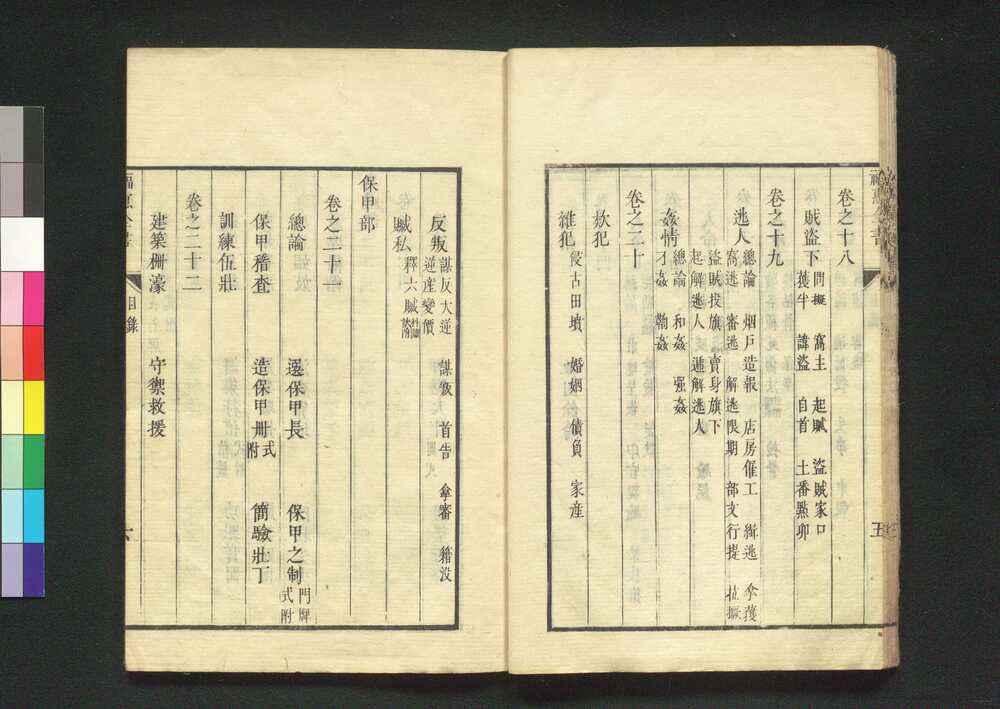 卷之十八
賊盜下 問擬 窩主 起贓 盜賊家口
獲半 諱盜 自首 土番點卯
卷之十九
逃人 總論 烟戶造報 店房僱工 緝逃 拿獲
窩逃 審逃 解逃限期 部文行提
盜賊投旗 賣身旗下
起解逃人 遞解逃人
姦情 總論 和姦 强姦
刁姦 雞姦
卷之二十
欸犯
雜犯 侵古田墳 婚姻 債負 家產
五
反叛 謀反大逆 謀叛 首告 拿審 籍没
逆産變價
贓私 釋六贓
保甲部
卷之二十一
總論 選保甲長 保甲之制 門牌式附
保甲稽查 造保甲冊 式附 簡驗壯丁
訓練伍壯
卷之二十二
建築柵濠 守禦救援
目錄
六